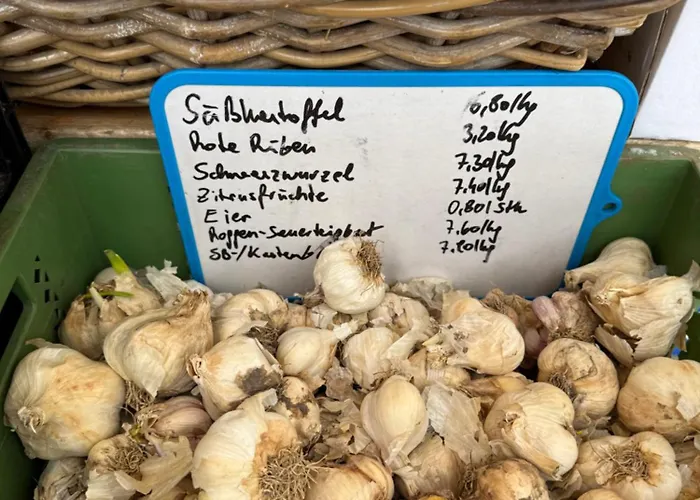 Süßkartoffel 6,80/kg
Rote Rüben 3,20/kg
Schwarzwurzel 7.30/kg
Zitrusfrüchte 7.40/kg
Eier 0,80/Stk
Roggen-Sauerteigbrot 7.60/kg
SB-/Kastenb 7.20/kg